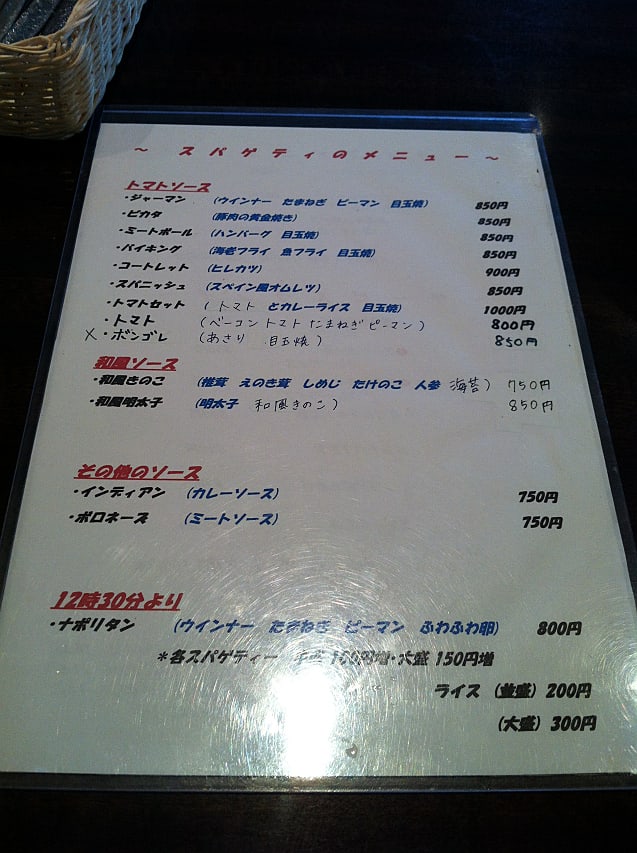 ～ スパゲティのメニュー ～
トマトソース
・ジャーマン （ウインナー たまねぎ ピーマン 目玉焼） 850円
・ピカタ （豚肉の黄金焼き） 850円
・ミートボール （ハンバーグ 目玉焼） 850円
・バイキング （海老フライ 魚フライ 目玉焼） 850円
・コートレット （ヒレカツ） 900円
・スパニッシュ （スペイン風オムレツ） 850円
・トマトセット （トマト とカレーライス 目玉焼） 1000円
・トマト （ベーコン トマト たまねぎ ピーマン） 800円
×・ボンゴレ （あさり 目玉焼） 850円
和風ソース
・和風きのこ （椎茸 えのき茸 しめじ たけのこ 人参 海苔） 750円
・和風明太子 （明太子 和風きのこ） 850円
その他のソース
・インディアン （カレーソース） 750円
・ボロネーズ （ミートソース） 750円
12時30分より
・ナポリタン （ウインナー たまねぎ ピーマン ふわふわ卵） 800円
＊各スパゲティー 100円増・大盛 150円増
ライス （並盛） 200円
（大盛） 300円